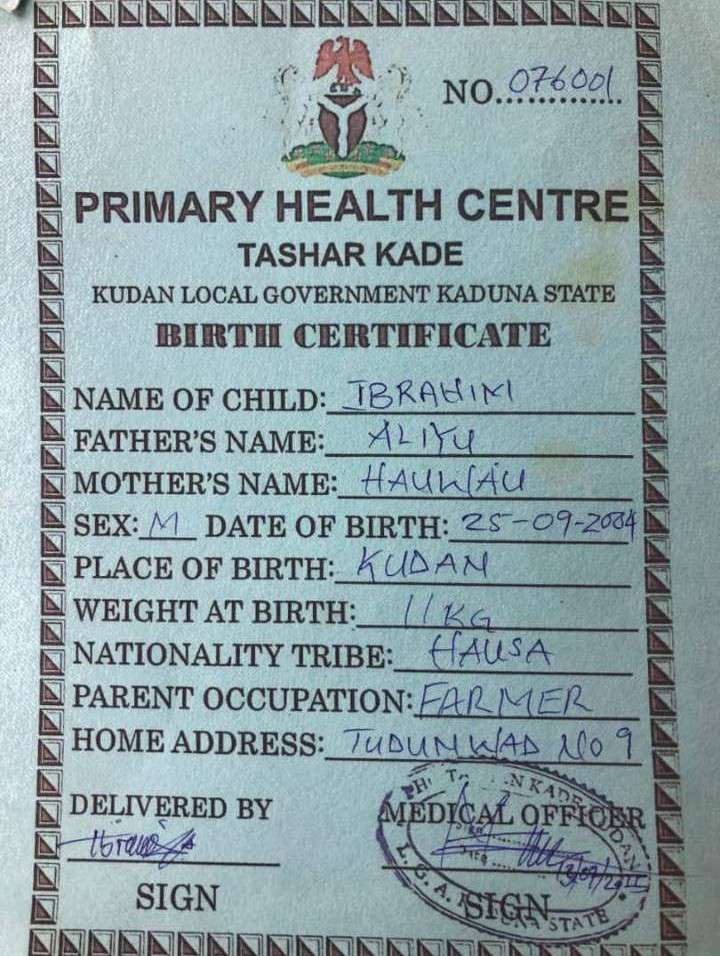 NO. 076001
PRIMARY HEALTH CENTRE
TASHAR KADE
KUDAN LOCAL GOVERNMENT KADUNA STATE
BIRTH CERTIFICATE
NAME OF CHILD: IBRAHIM
FATHER'S NAME: ALIYU
MOTHER'S NAME: HAUWAU
SEX: M DATE OF BIRTH: 25-09-2004
PLACE OF BIRTH: KUDAN
WEIGHT AT BIRTH: 11KG
NATIONALITY TRIBE: HAUSA
PARENT OCCUPATION: FARMER
HOME ADDRESS: TUDUNWAD NO 9
DELIVERED BY
MEDICAL OFFICER
SIGN
SIGN
L.G.A. STATE